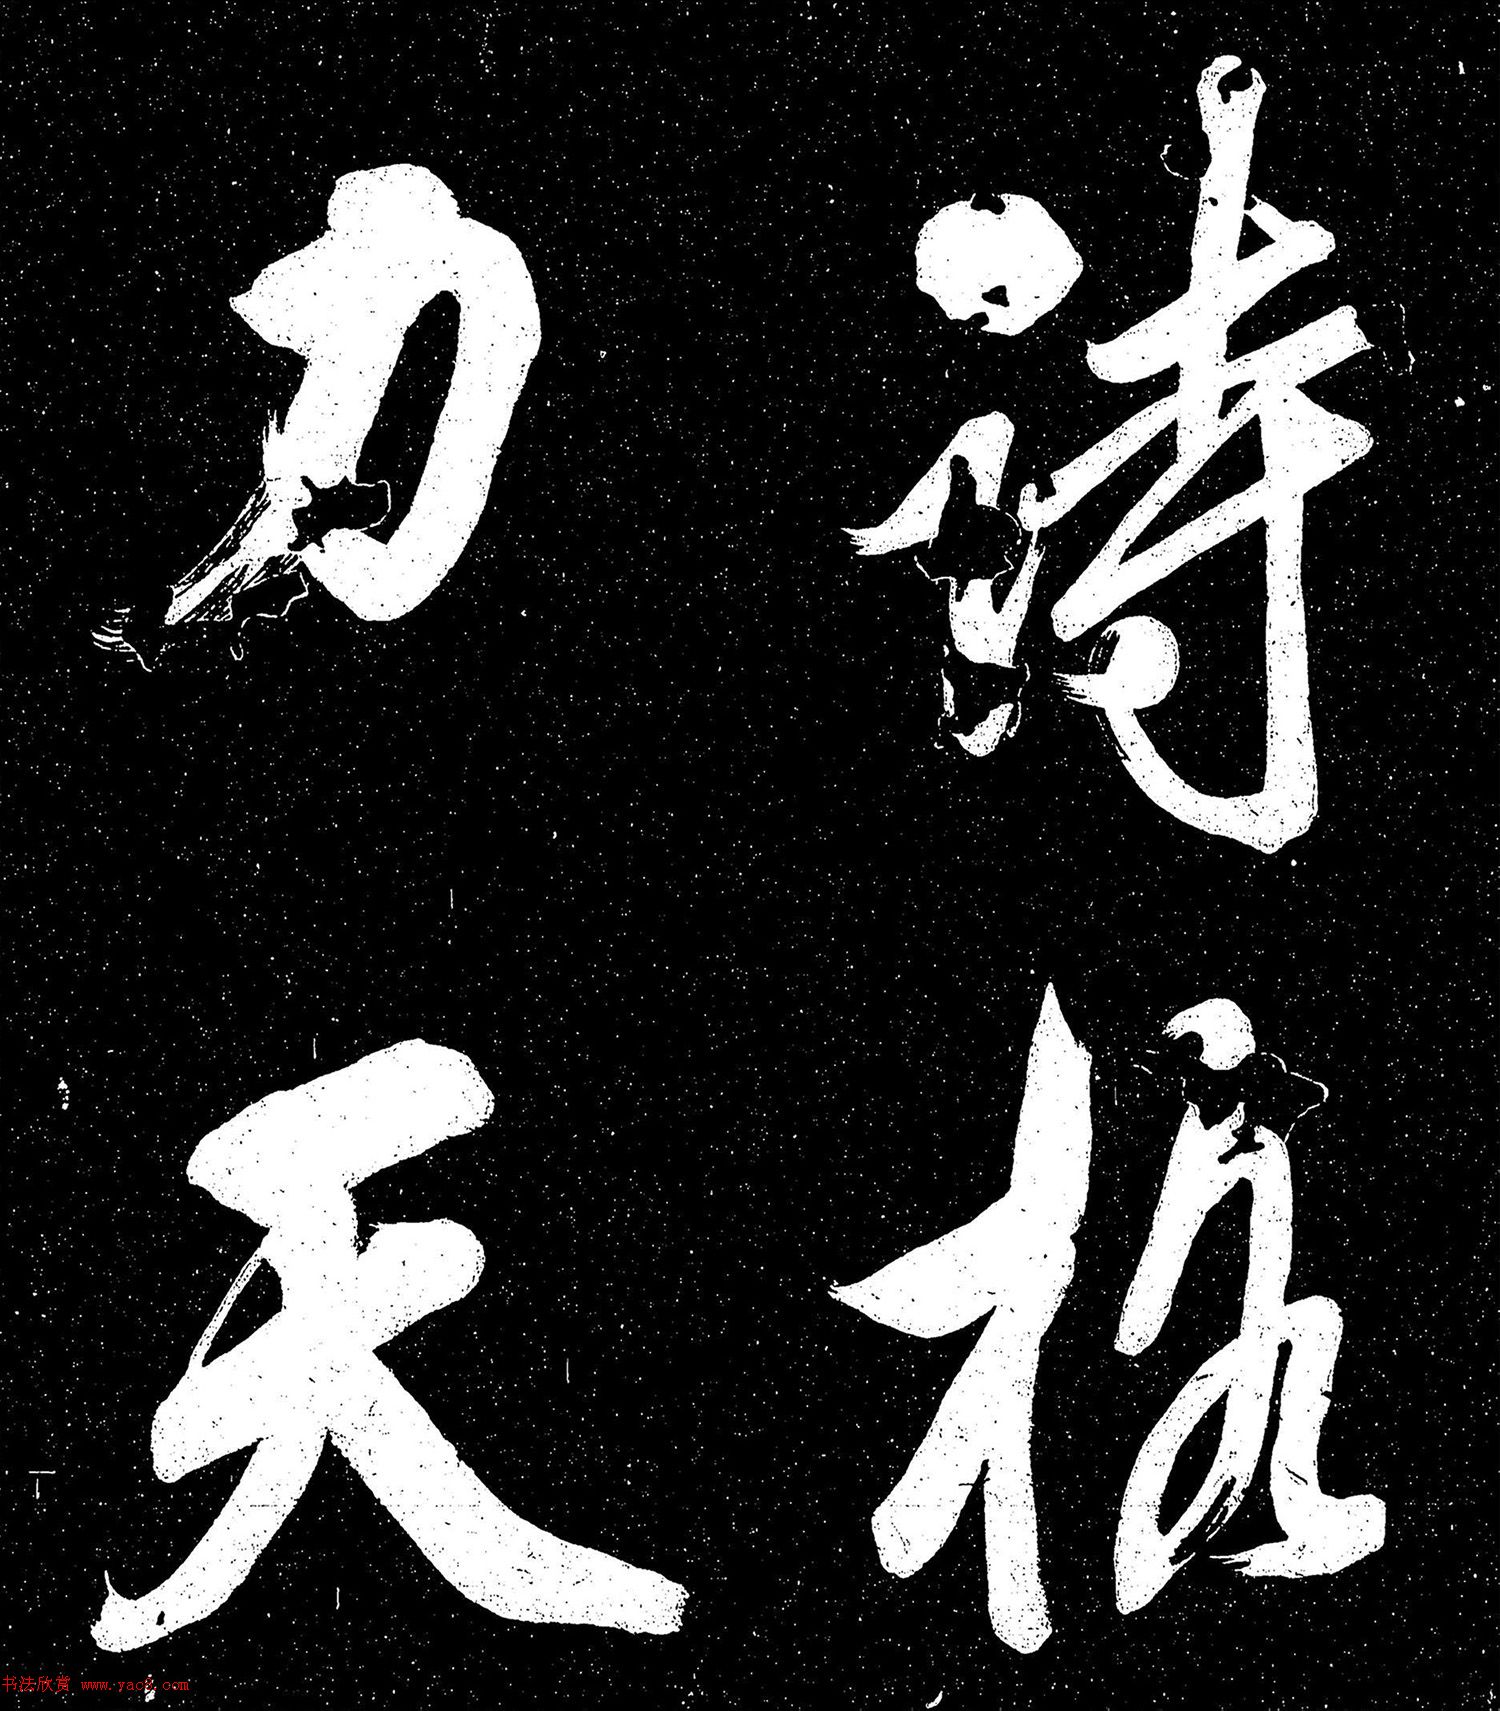 詩
力天
书法欣赏 www.yac8.com